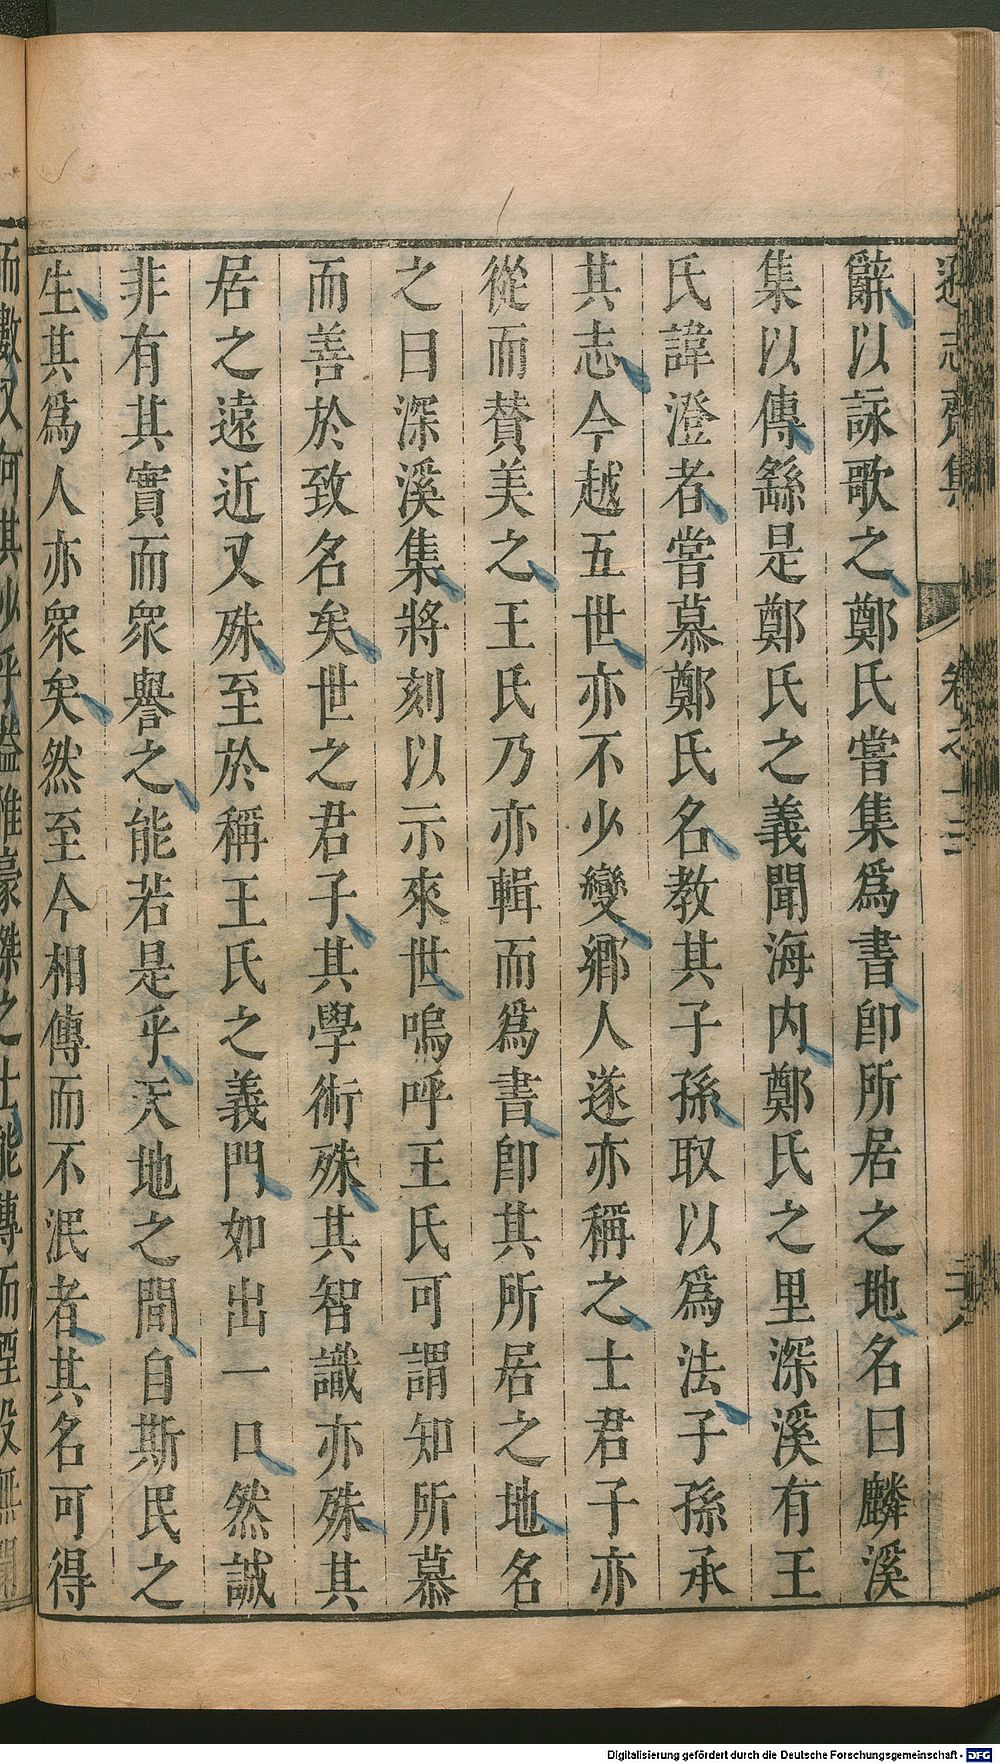 遜志齋集 卷之十三
辭以詠歌之鄭氏嘗集爲書卽所居之地名曰麟溪
集以傳繇是鄭氏之義聞海内鄭氏之里深溪有王
氏諱澄者嘗慕鄭氏名教其子孫取以爲法子孫承
其志今越五世亦不少變鄉人遂亦稱之士君子亦
從而贊美之王氏乃亦輯而爲書卽其所居之地名
之曰深溪集將刻以示來世嗚呼王氏可謂知所慕
而善於致名矣世之君子其學術殊其智識亦殊其
居之遠近又殊至於稱王氏之義門如出一口然誠
非有其實而衆譽之能若是乎天地之間自斯民之
生其爲人亦衆矣然至今相傳而不泯者其名可得
而數又何其少乎蓋雖豪傑之士能傳而湮没無聞
Digitalisierung gefördert durch die Deutsche Forschungsgemeinschaft - DFG